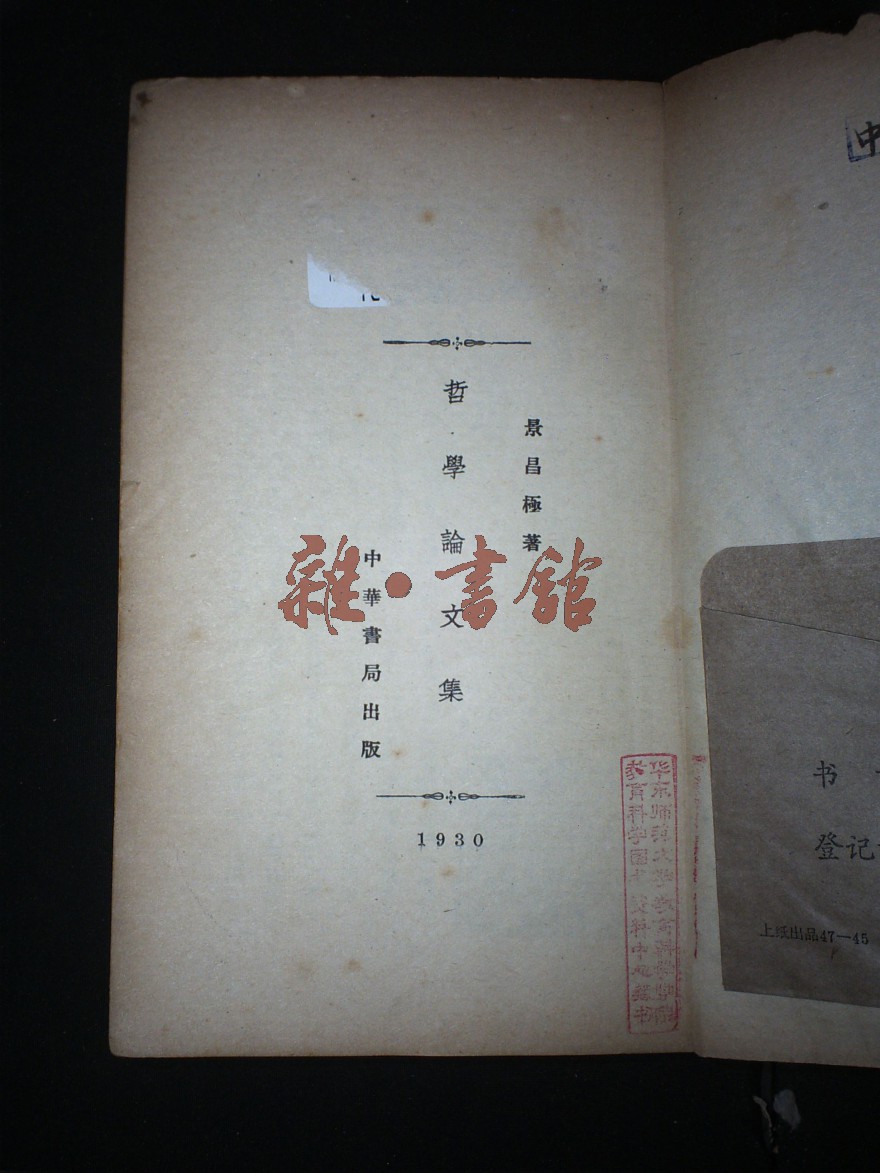 中
景昌極著
哲學論文集
中華書局出版
1930
雜·書館
华东师范大学教育科学学院
教育科学图书资料中心藏书
书
登记
上纸出品47—45